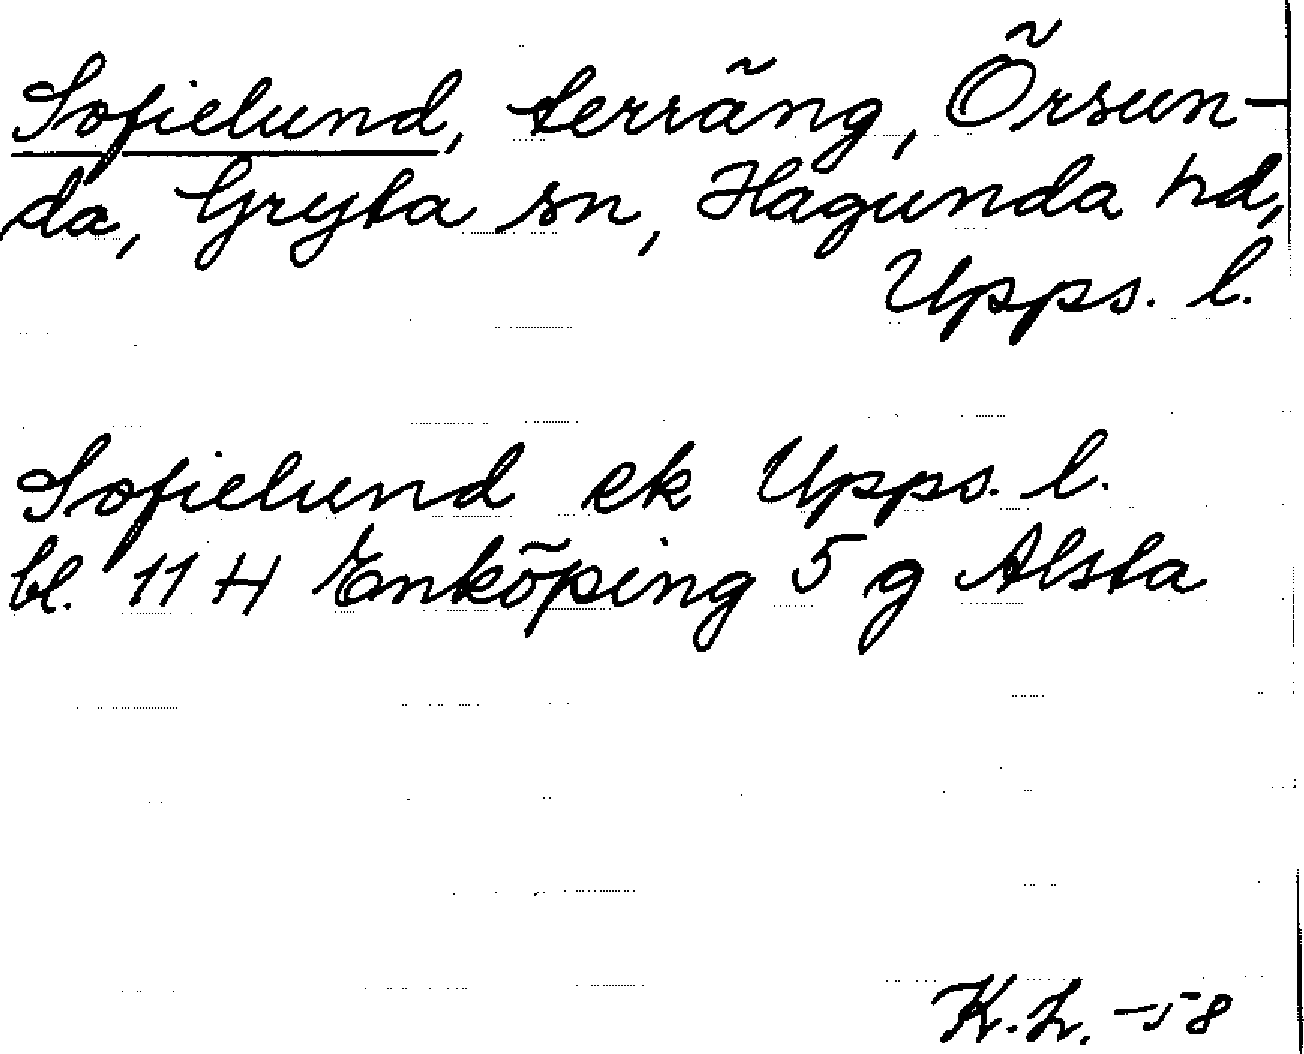 Sofielund, terräng, Örsun-
da, Gryta sn, Hagunda hd,
Upps. l.
Sofielund ek Upps. l.
bl. 11 H Enköping 5 g Alsta
K.L. -58